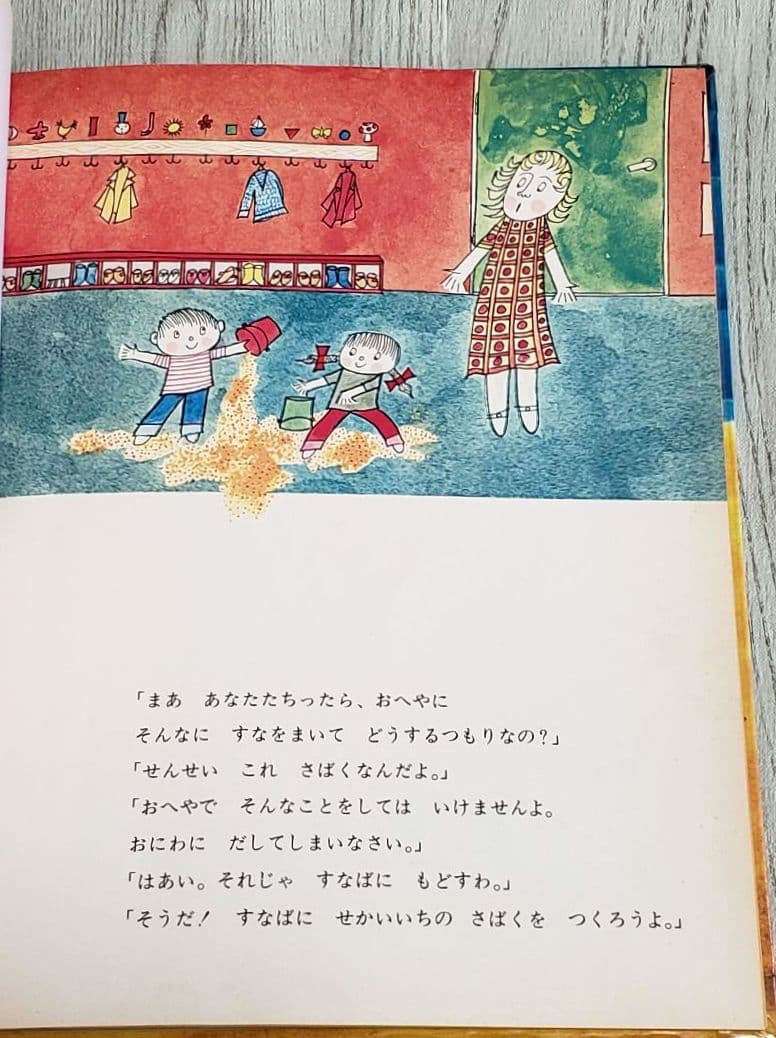 「まあ　あなたたちったら、おへやに
そんなに　すなをまいて　どうするつもりなの？」
「せんせい　これ　さばくなんだよ。」
「おへやで　そんなことをしては　いけませんよ。
おにわに　だしてしまいなさい。」
「はあい。それじゃ　すなばに　もどすわ。」
「そうだ！　すなばに　せかいいちの　さばくを　つくろうよ。」